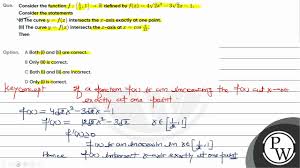 Ques. Consider the function f : [1/2, 1] → R defined by f(x) = 4√2x³ − 3√2x − 1.
Consider the statements
(I) The curve y = f(x) intersects the x-axis exactly at one point.
(II) The curve y = f(x) intersects the x-axis at x = cos π/12.
Then
Option. A Both (I) and (II) are correct.
B Only (I) is correct.
C Both (I) and (II) are incorrect.
D Only (II) is correct.
Key concept If a function f(x) is an increasing the f(x) cut x-axis
exactly at one point
f(x) = 4√2 x³ − 3√2x − 1
f'(x) = 12√2 x² − 3√2 x ∈ [1/2, 1]
f'(x) ≥ 0
f(x) is an increasing in x ∈ [1/2, 1]
Hence f(x) intersect x-axis exactly at one point
P
W